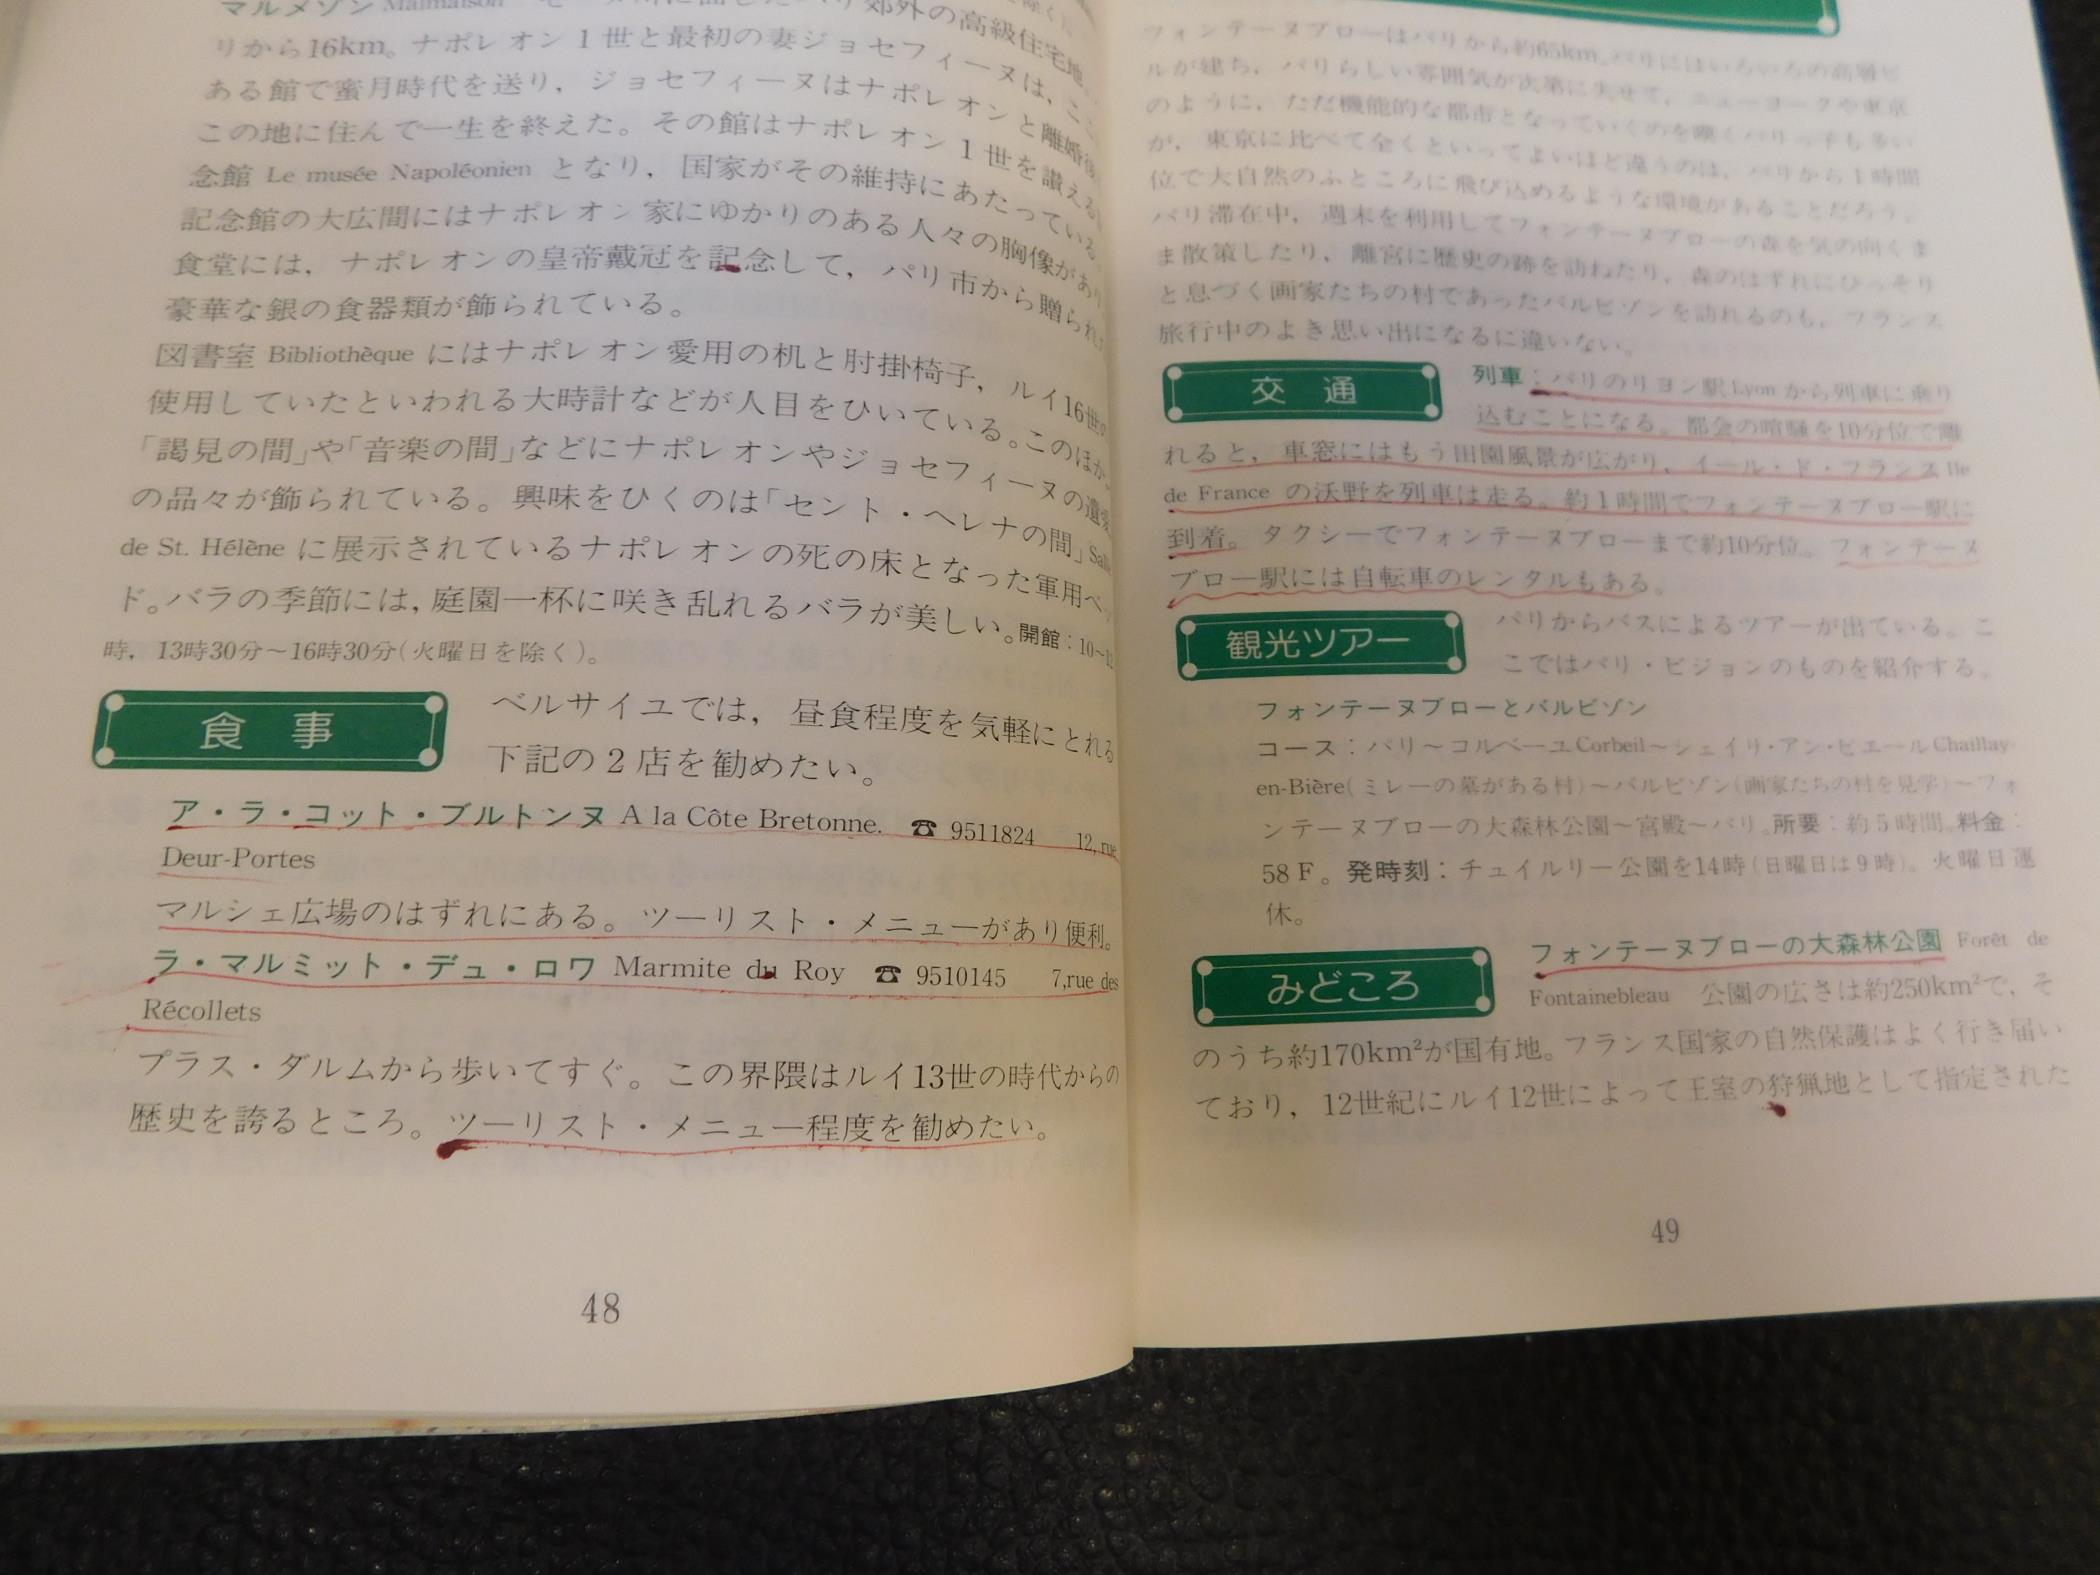 マルメゾン Malmaison
リから16km。ナポレオン１世と最初の妻ジョセフィーヌは、ここ
ある館で蜜月時代を送り，ジョセフィーヌはナポレオンと離婚後
この地に住んで一生を終えた。その館はナポレオン１世を讃える
念館 Le musée Napoléonien となり，国家がその維持にあたっている。
記念館の大広間にはナポレオン家にゆかりのある人々の胸像があり
食堂には，ナポレオンの皇帝戴冠を記念して，パリ市から贈られた
豪華な銀の食器類が飾られている。
図書室 Bibliothèque にはナポレオン愛用の机と肘掛椅子，ルイ16世の
使用していたといわれる大時計などが人目をひいている。このほか，
「謁見の間」や「音楽の間」などにナポレオンやジョセフィーヌの遺愛
の品々が飾られている。興味をひくのは「セント・ヘレナの間」Salle
de St. Hélène に展示されているナポレオンの死の床となった軍用ベッ
ド。バラの季節には，庭園一杯に咲き乱れるバラが美しい。開館：10～12
時，13時30分～16時30分（火曜日を除く）。
食事
ベルサイユでは，昼食程度を気軽にとれる
下記の２店を勧めたい。
ア・ラ・コット・ブルトンヌ A la Côte Bretonne. ☎ 9511824 12, rue
Deur-Portes
マルシェ広場のはずれにある。ツーリスト・メニューがあり便利。
ラ・マルミット・デュ・ロワ Marmite du Roy ☎ 9510145 7,rue des
Récollets
プラス・ダルムから歩いてすぐ。この界隈はルイ13世の時代からの
歴史を誇るところ。ツーリスト・メニュー程度を勧めたい。
48
フォンテーヌブローはパリから約65km。パリにはいろいろの高層ビ
ルが建ち，パリらしい雰囲気が次第に失せて，ニューヨークや東京
のように，ただ機能的な都市となっていくのを嘆くパリっ子も多い
が，東京に比べて全くといってよいほど違うのは，パリから１時間
位で大自然のふところに飛び込めるような環境があることだろう。
パリ滞在中，週末を利用してフォンテーヌブローの森を気の向くま
ま散策したり，離宮に歴史の跡を訪ねたり，森のはずれにひっそり
と息づく画家たちの村であったバルビゾンを訪れるのも，フランス
旅行中のよき思い出になるに違いない。
交通
列車：パリのリヨン駅Lyonから列車に乗り
込むことになる。都会の喧騒を10分位で離
れると，車窓にはもう田園風景が広がり，イール・ド・フランスIle
de France の沃野を列車は走る。約１時間でフォンテーヌブロー駅に
到着。タクシーでフォンテーヌブローまで約10分位。フォンテーヌ
ブロー駅には自転車のレンタルもある。
観光ツアー
パリからバスによるツアーが出ている。こ
こではパリ・ビジョンのものを紹介する。
フォンテーヌブローとバルビゾン
コース：パリ～コルベーユCorbeil～シェイリ・アン・ビエールChailly-
en-Bière（ミレーの墓がある村）～バルビゾン（画家たちの村を見学）～フォ
ンテーヌブローの大森林公園～宮殿～パリ。所要：約５時間。料金：
58Ｆ。発時刻：チュイルリー公園を14時（日曜日は９時）。火曜日運
休。
みどころ
フォンテーヌブローの大森林公園 Forêt de
Fontainebleau 公園の広さは約250km²で，そ
のうち約170km²が国有地。フランス国家の自然保護はよく行き届い
ており，12世紀にルイ12世によって王室の狩猟地として指定された
49